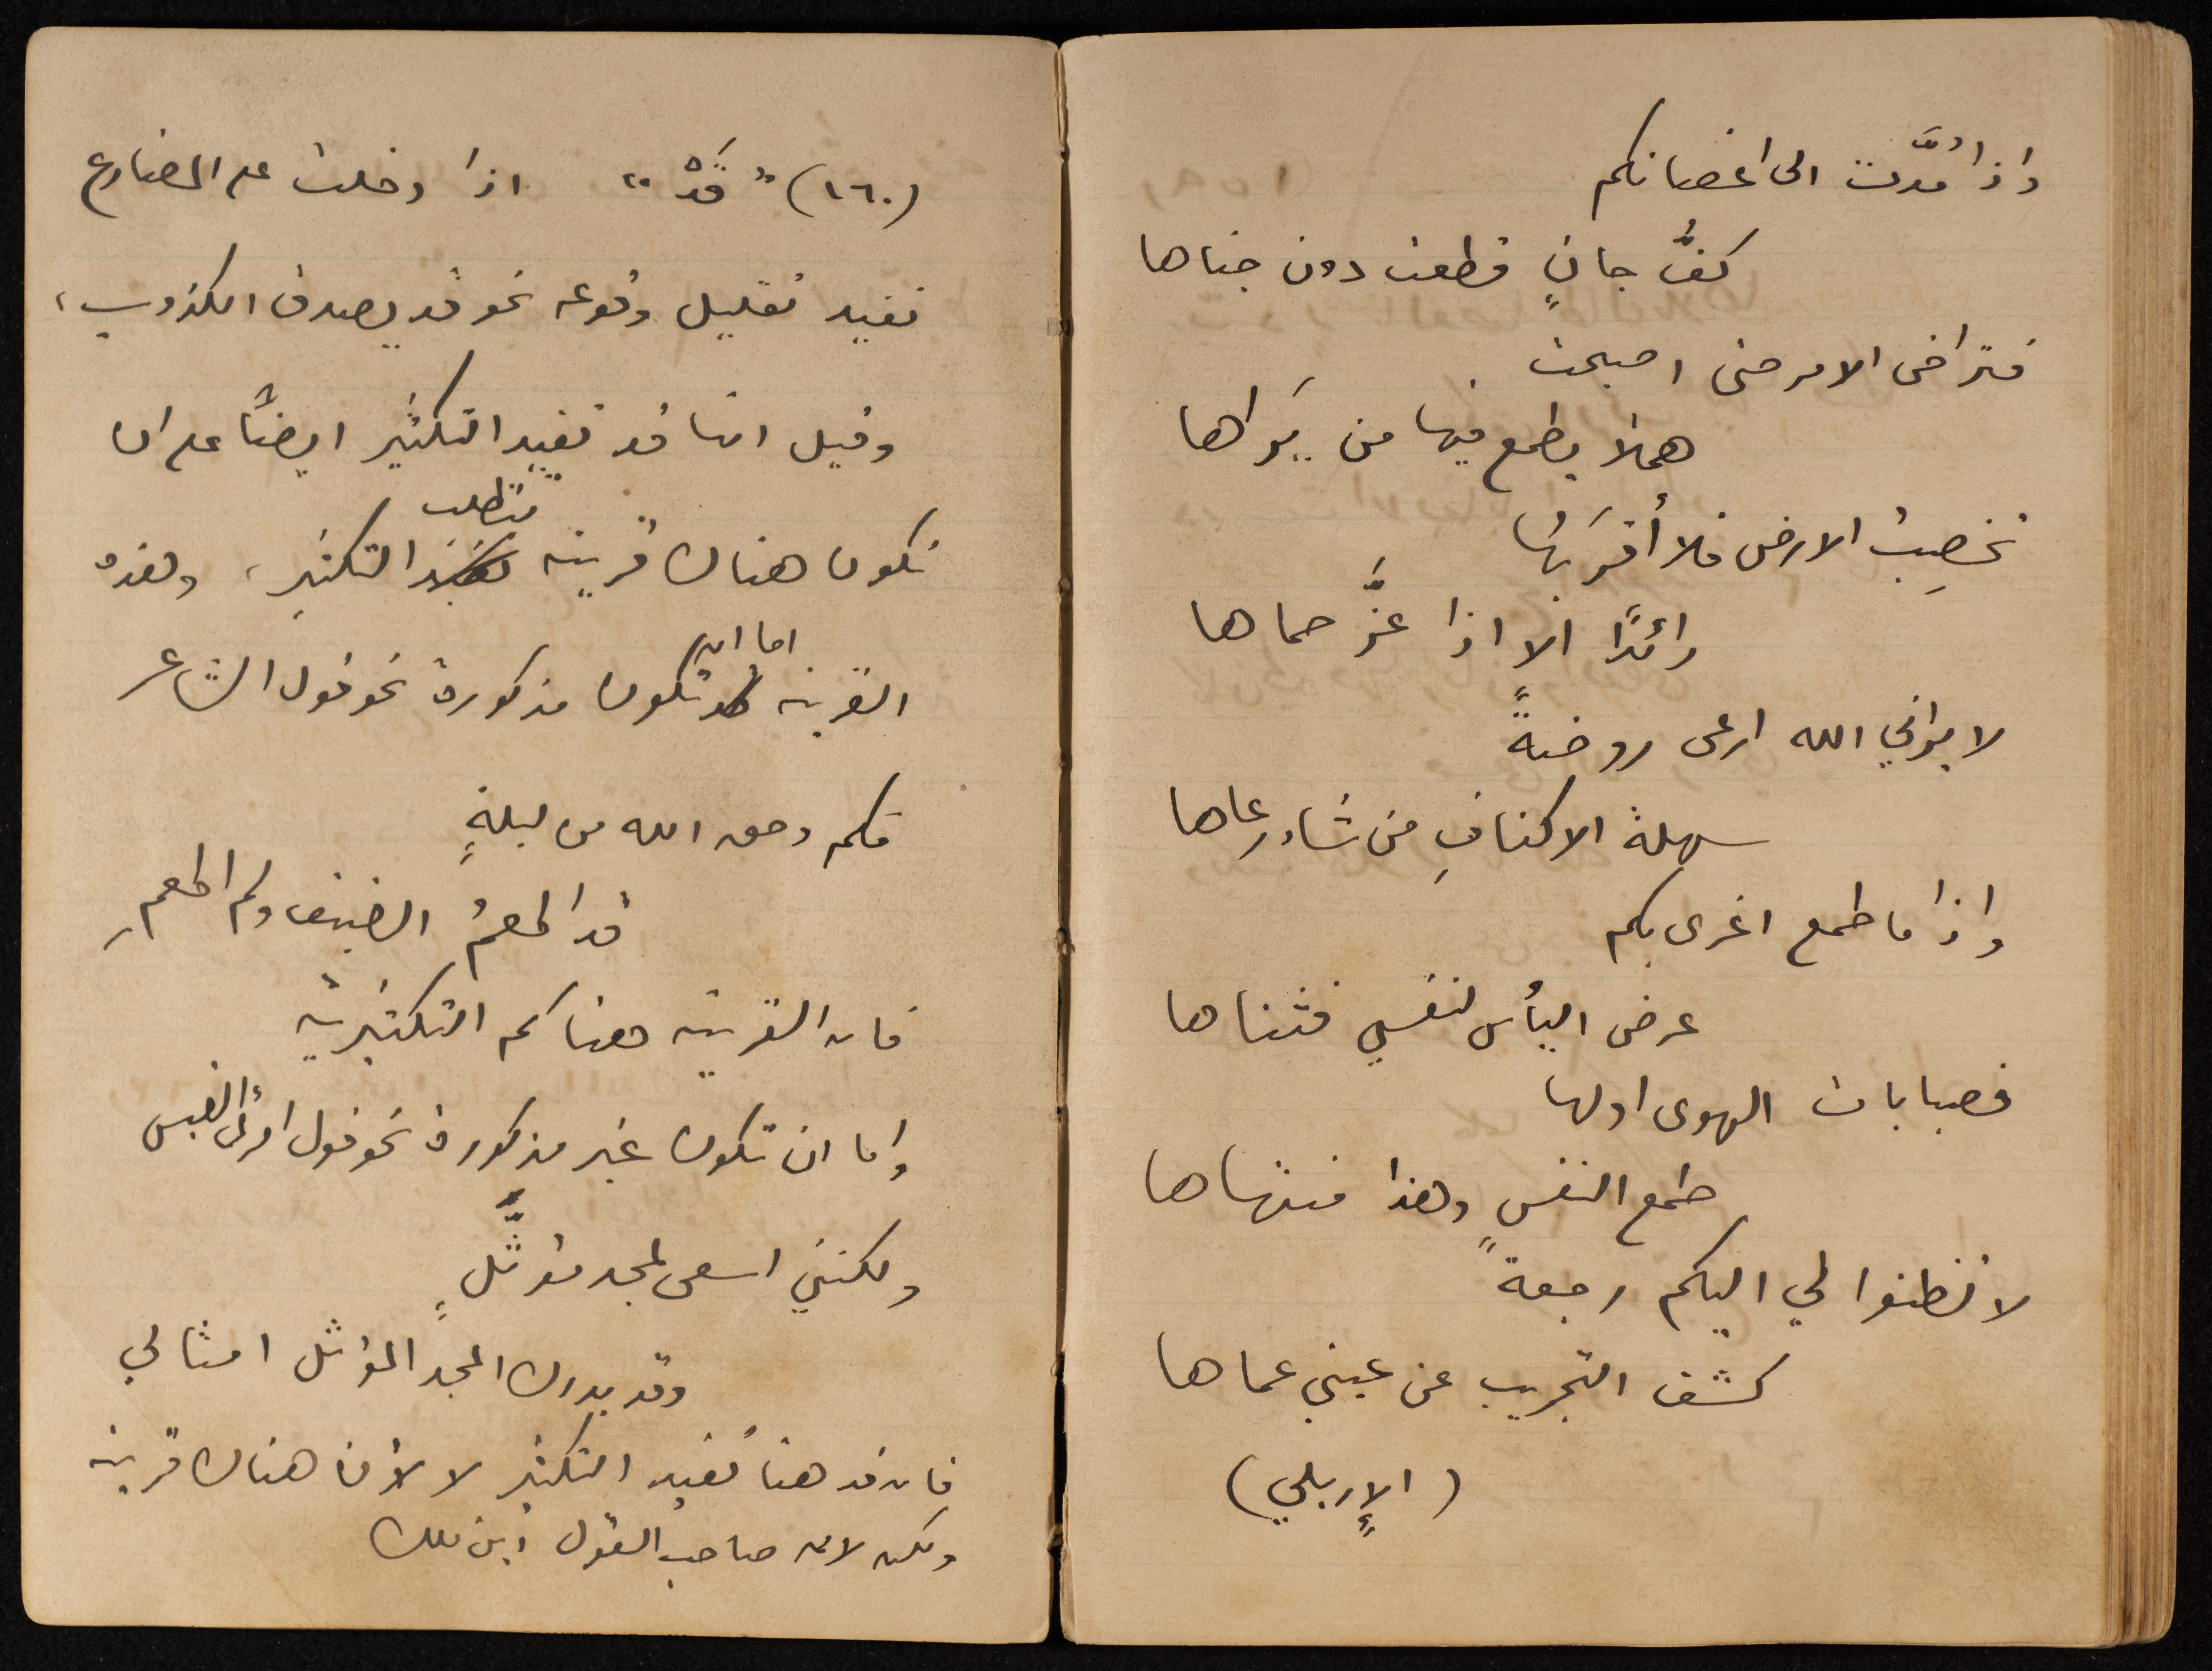 واذا مُدَّت الى اغصانكم
كفُّ جانٍ قطعت دون جناها
فتراخى الامر حتى اصبحت
هملا يطمع فيها من يَراها
تخصِبُ الارض فلا أقرَبُها
رائدًا الا اذا عزَّ حماها
لا يراني الله ارعى روضةً
سهلة الاكنافِ من شاء رعاها
واذا ما طمع اغرى بكم
عرض اليأس لنفسي فثناها
فصبابات الهوى اولها
طمع النفسِ وهذا منتهاها
لا تظنوا لي اليكم رجعةً
كشف التجريب عن عيني عماها
(الإربلي)
(١٦٠) "قَدْ" اذا دخلت على المضارع
تفيد تقليل وقوعه نحو قد يصدق الكذوب،
وقيل انها قد تفيد التكثير ايضاً على ان
تكون هناك قرينة تتطلب التكثير، وهذه
القرينة اما ان تكون مذكورة نحو قول الشاعر
فكم وحق الله من ليلةٍ
قد اطعمُ الضيف ولم اطعمِ
فان القرينة هنا كم التكثيرية
واما ان تكون غير مذكورة نحو قول امرئ القيس
ولكنني اسعى لمجد مؤثَّلٍ
وقد يدرك المجد المؤثل امثالي
فان قد هنا تفيد التكثير لا لأن هناك قرينة
ولكن لان صاحب القول ابن ملك